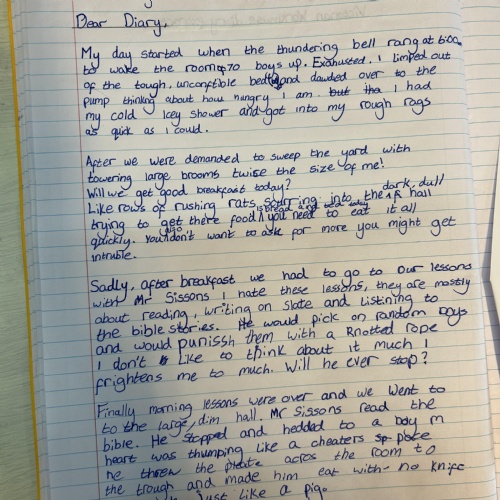 Dear Diary,
My day started when the thundering bell rang at 6:00am
to wake the room of 70 boys up. Exahusted. I limped out
of the tough, unconftible bed and dawded over to the
pump thinking about how hungry I am. but tha I had
my cold Icey shower and got into my rough rags
as quik as I could.
After we were demanded to sweep the yard with
towering large brooms twise the size of me!
Will we get good breakfast today?
Like rows of rushing rats, scurring into the dark, dull hall
trying to get there food is bread and you need to eat it all
quickly. You don't want to ask for more you might get
intruble.
Sadly, after breakfast we had to go to our lessons
with Mr Sissons I hate these lessons, they are mostly
about reading, writing on slate and listning to
the bible stories. He would pick on random boys
and would punissh them with a knotted rope
I don't like to think about it much I
frightens me to much. Will he ever stop?
Finally morning lessons were over and we went to
to the large, dim hall. Mr Sissons read the
bible. He stopped and hedded to a boy m
heart was thumping like a cheaters sp place
he threw the plate acros the room to
the trough and made him eat with no knife
just like a pig.